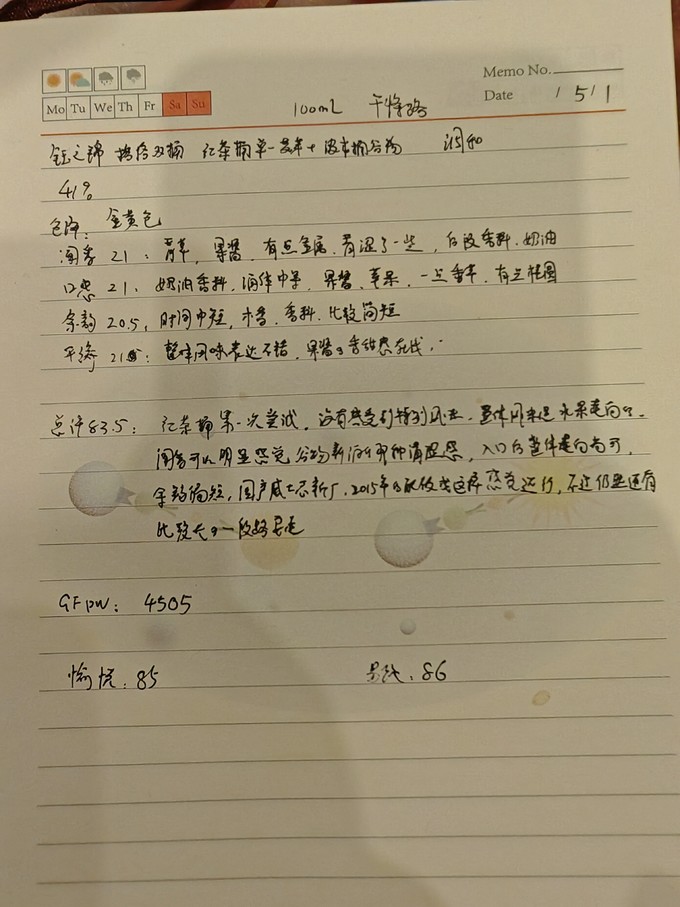 Memo No.
Mo Tu We Th Fr Sa Su
Date / 5 / 1
100mL
钰之锦 双桶 红茶桶单一麦芽+波本桶谷物 调和
41%
色泽:金黄色
闻香 21:青草,果酱,有点金属,青涩了一些,后段香料.奶油
口感 21:奶油香料,酒体中等,果酱,苹果,一点香草,有点
余韵 20.5:时间中短,木香.香料.比较简短
平衡 21:整体风味表达不错,果酱
总评83.5:红茶桶第一次尝试,没有感受到特别风味.整体风味是水果走向
闻香可以明显感觉谷物新酒的那种清涩感,入口后整体走向尚可,
余韵偏短,国产威士忌新厂,2015年的能做成这样感觉还行,不过仍然还有
比较长的一段路要走
GFpw:4505
愉悦:85 86